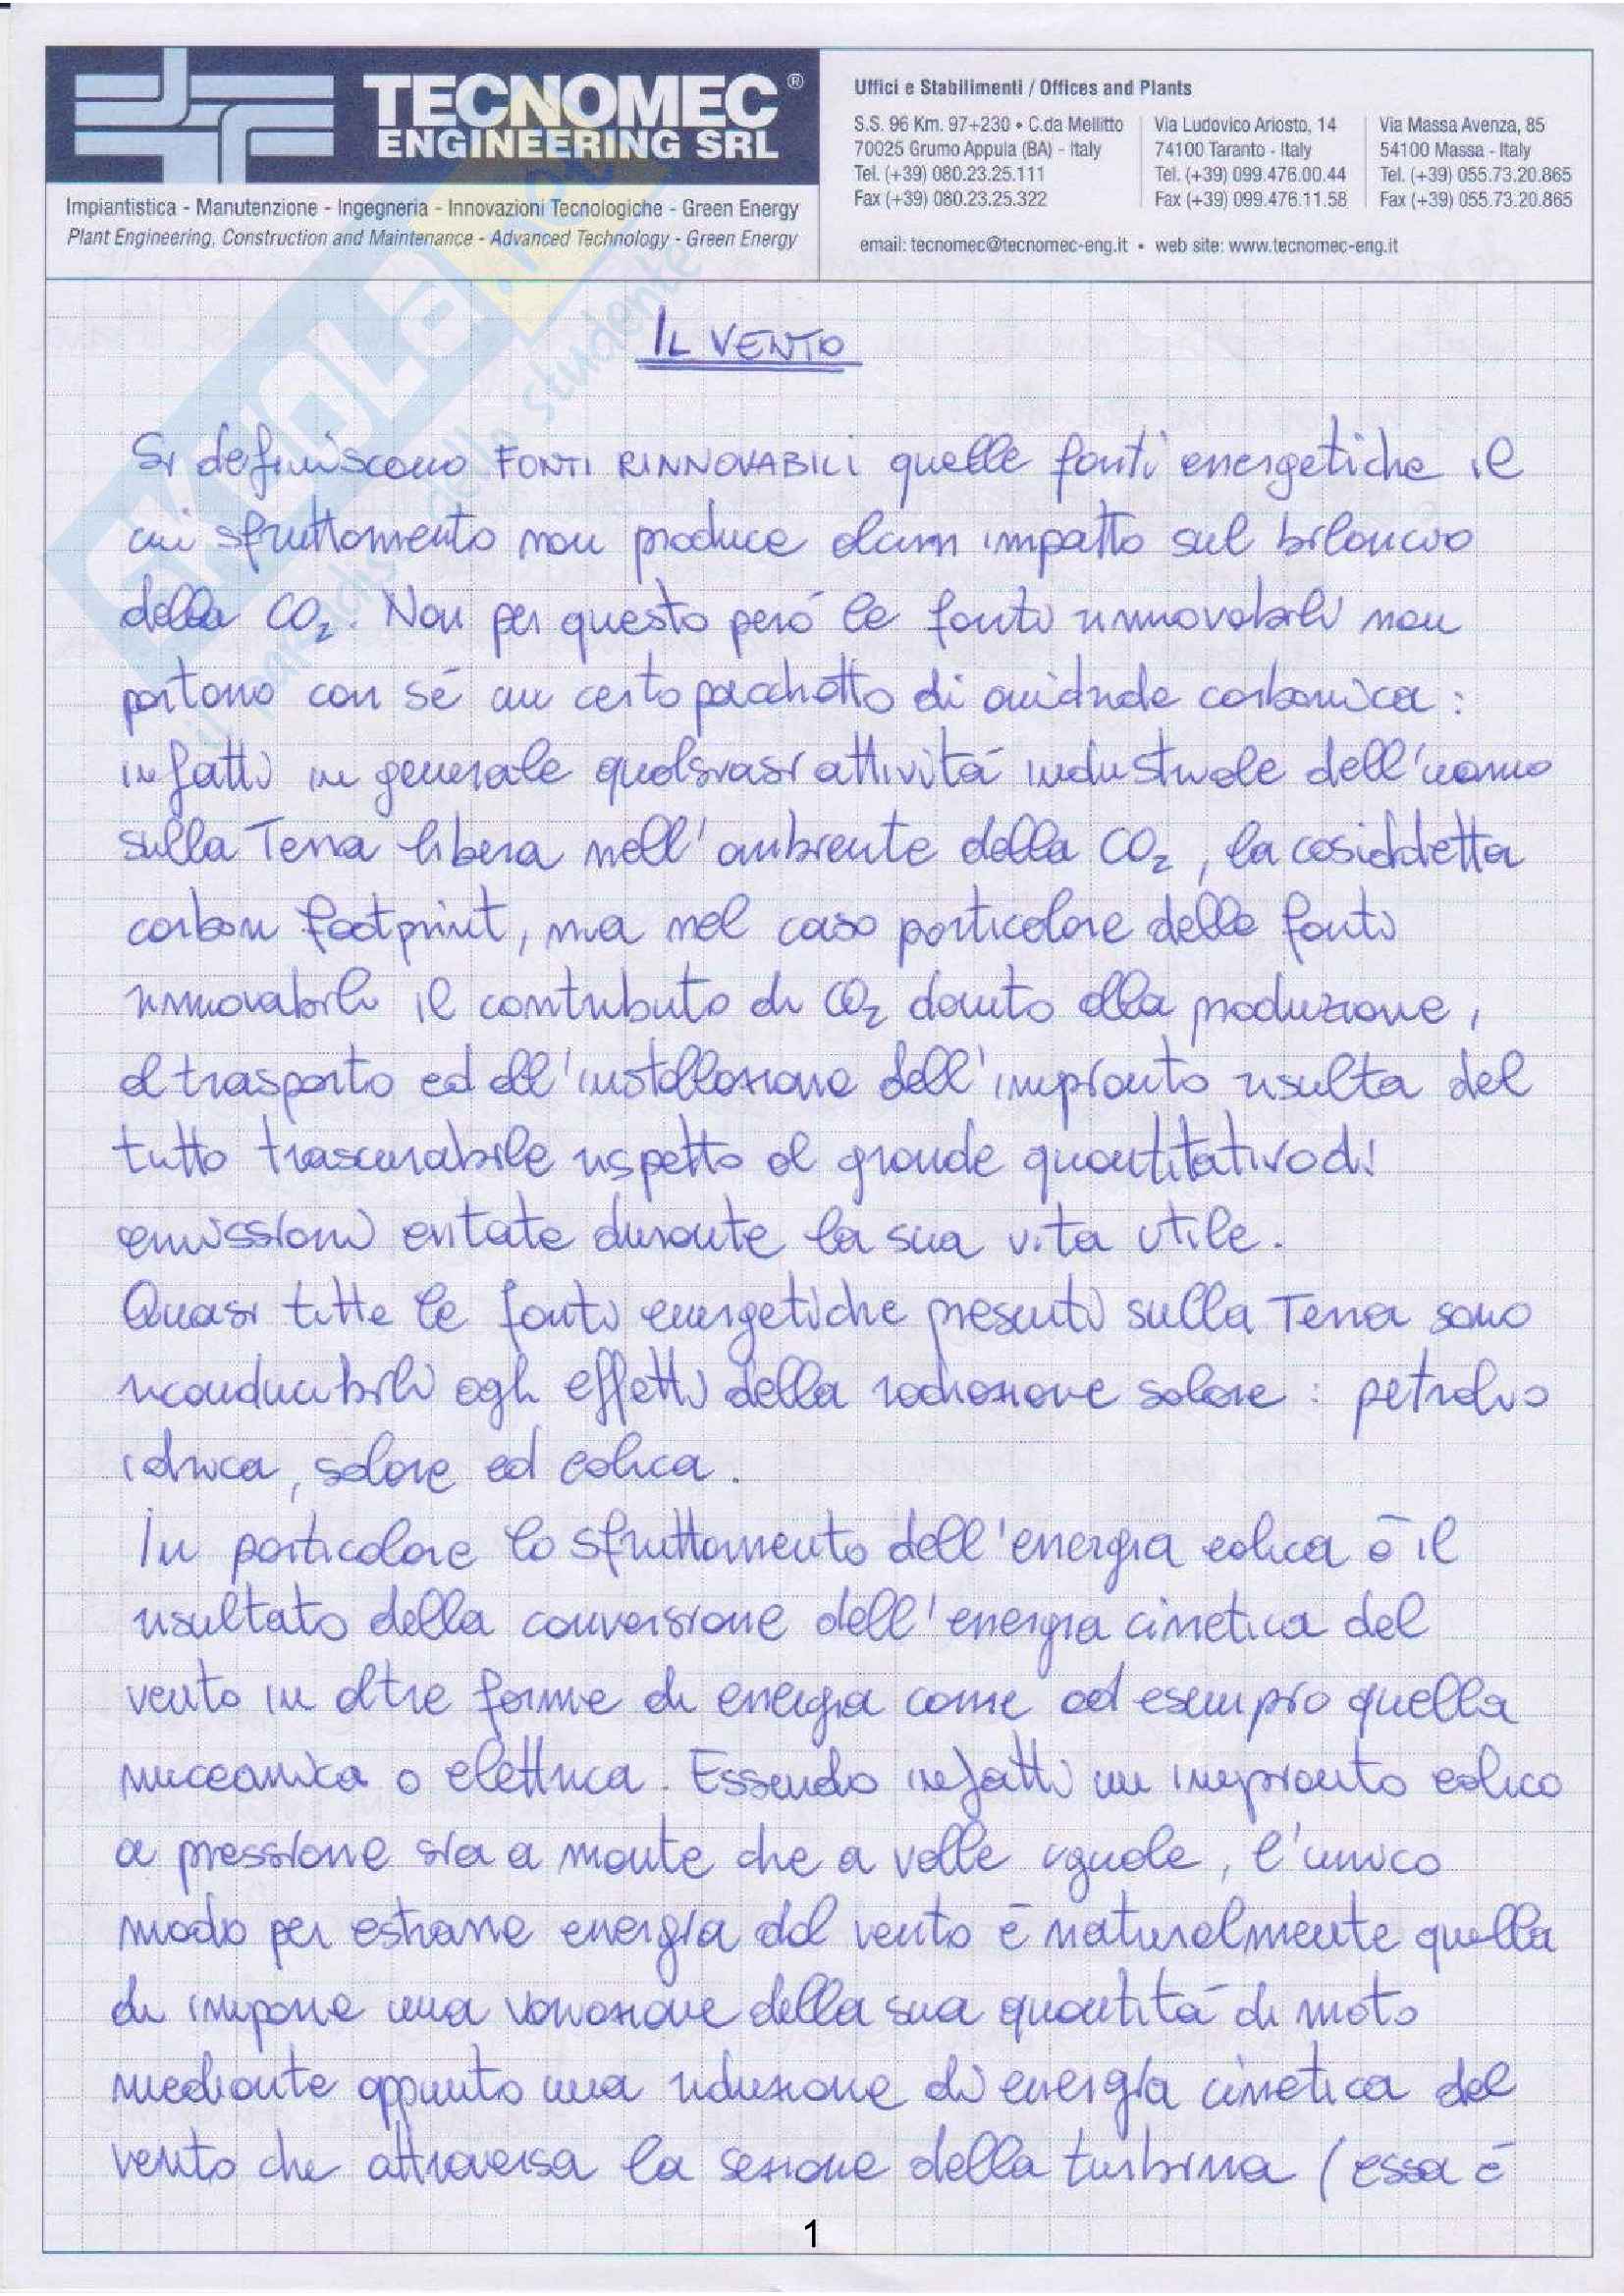 TECNOMEC®
ENGINEERING SRL
Impiantistica - Manutenzione - Ingegneria - Innovazioni Tecnologiche - Green Energy
Plant Engineering, Construction and Maintenance - Advanced Technology - Green Energy
Uffici e Stabilimenti / Offices and Plants
S.S. 96 Km. 97+230 • C.da Mellitto
70025 Grumo Appula (BA) - Italy
Tel. (+39) 080.23.25.111
Fax (+39) 080.23.25.322
Via Ludovico Ariosto, 14
74100 Taranto - Italy
Tel. (+39) 099.476.00.44
Fax (+39) 099.476.11.58
Via Massa Avenza, 85
54100 Massa - Italy
Tel. (+39) 055.73.20.865
Fax (+39) 055.73.20.865
email: tecnomec@tecnomec-eng.it • web site: www.tecnomec-eng.it
SKUOLA.net
il paradiso dello studente
IL VENTO
Si definiscono FONTI RINNOVABILI quelle fonti energetiche il
cui sfruttamento non produce alcun impatto sul bilancio
della CO₂. Non per questo però le fonti rinnovabili non
portano con sé un certo pacchetto di anidride carbonica:
infatti in generale qualsiasi attività industriale dell'uomo
sulla Terra libera nell'ambiente della CO₂, la cosiddetta
carbon footprint, ma nel caso particolare delle fonti
rinnovabili il contributo di CO₂ dovuto alla produzione,
al trasporto ed all'installazione dell'impianto risulta del
tutto trascurabile rispetto al grande quantitativo di
emissioni evitate durante la sua vita utile.
Quasi tutte le fonti energetiche presenti sulla Terra sono
riconducibili agli effetti della radiazione solare: petrolio
idrica, solare ed eolica.
In particolare lo sfruttamento dell'energia eolica è il
risultato della conversione dell'energia cinetica del
vento in altre forme di energia come ad esempio quella
meccanica o elettrica. Essendo infatti un impianto eolico
a pressione sia a monte che a valle uguale, l'unico
modo per estrarre energia dal vento è naturalmente quella
di imporre una variazione della sua quantità di moto
mediante appunto una riduzione di energia cinetica del
vento che attraversa la sezione della turbina (essa è
1